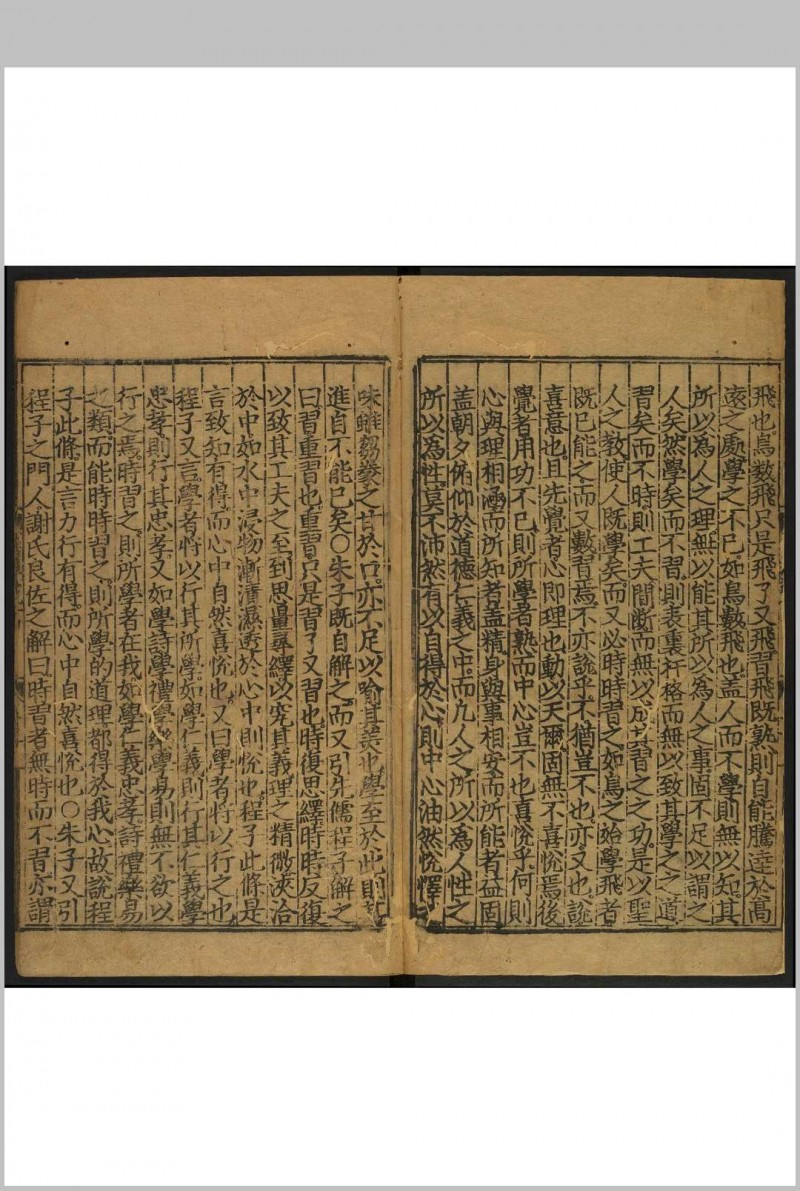 飛也鳥數飛只是飛了又飛習飛既熟則自能騰達於高
遠之處學之不已如鳥數飛也盖人而不學則無以知其
所以為人之理無以能其所以為人之事固不足以謂之
人矣然學矣而不習則表裏扞格而無以致其學之之道
習矣而不時則工夫間斷而無以成其習之之功是以聖
人之教使人既學矣而又必時時習之如鳥之始學飛者
既已能之而又數習焉不亦說乎不猶豈不也亦又也說
喜意也且先覺者心即理也動以天爾固無不喜悅焉後
覺者用功不已則所學者熟而中心豈不也喜悅乎何則
心與理相涵而所知者益精身與事相安而所能者益固
盖朝夕俯仰於道德仁義之中而凡人之所以為人性之
所以為性莫不沛然有以自得於心則中心油然悅懌
味雖芻豢之甘於口亦不足以喻其美也學至於此則
進自不能已矣○朱子既自解之而又引先儒程子解之
曰習重習也重習只是習了又習也時復思繹時時反復
以致其工夫之至到思量尋繹以究其義理之精微浹洽
於中如水中浸物漸漬濕透於心中則悅也程子此條是
言致知有得而心中自然喜悅也又曰學者將以行之也
程子又言學者將以行其所學如學仁義則行其仁義學
忠孝則行其忠孝又如學詩學禮學樂學易則無不欲以
行之焉時習之則所學者在我如學仁義忠孝詩禮樂易
之類而能時時習之則所學的道理都得於我心故說程
子此條是言力行有得而心中自然喜悅也○朱子又引
程子之門人謝氏良佐之解曰時習者無時而不習亦謂